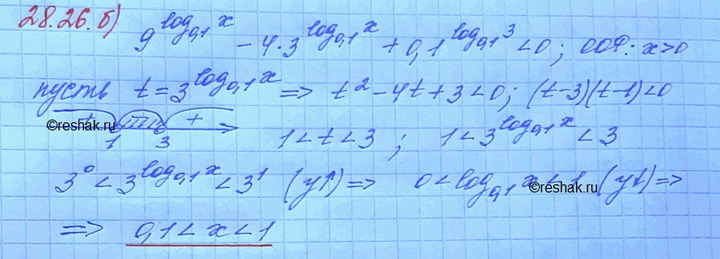 28.26.б) 9^{log_{0,1} x} - 4·3^{log_{0,1} x} + 0,1^{log_{0,1} 3} < 0; ООФ: x>0
пусть t = 3^{log_{0,1} x} => t² - 4t + 3 < 0; (t-3)(t-1) < 0
+ - +
©reshak.ru
1 3 1 < t < 3; 1 < 3^{log_{0,1} x} < 3
3^0 < 3^{log_{0,1} x} < 3^1 (y↑) => 0 < log_{0,1} x < 1 (y↓) =>
©reshak.ru
=> 0,1 < x < 1